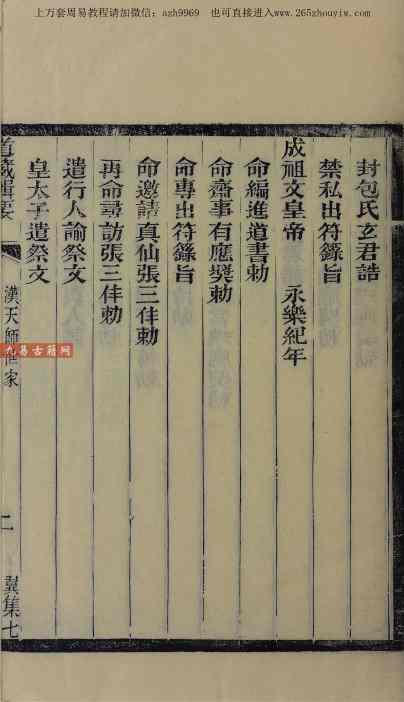 上万套周易教程请加微信：azh9969　也可直接进入www.265zhouyiw.com
封包氏玄君誥
禁私出符籙旨
成祖文皇帝　永樂紀年
命編進道書勅
命齋事有應奬勅
命專出符籙旨
命邀請真仙張三仹勅
再命尋訪張三仹勅
遣行人諭祭文
皇太子遣祭文
道藏輯要
漢天師世家
二
翼集七
九易古籍网